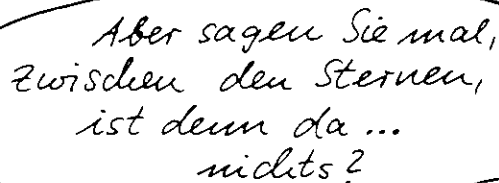 Aber sagen Sie mal,
zwischen den Sternen,
ist denn da...
nichts?